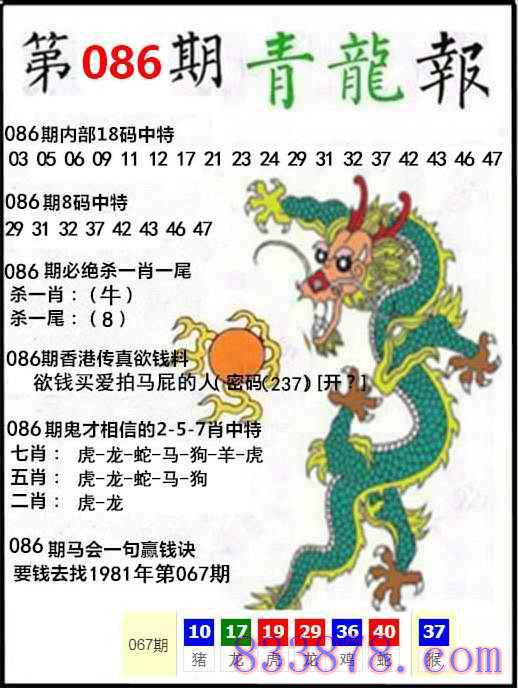 第086期 青龍報
086期内部18码中特
03 05 06 09 11 12 17 21 23 24 29 31 32 37 42 43 46 47
086期8码中特
29 31 32 37 42 43 46 47
086期必绝杀一肖一尾
杀一肖：（牛）
杀一尾：（8）
086期香港传真欲钱料
欲钱买爱拍马屁的人（密码(237)[开？]
086期鬼才相信的2-5-7肖中特
七肖： 虎-龙-蛇-马-狗-羊-虎
五肖： 虎-龙-蛇-马-狗
二肖： 虎-龙
086期马会一句赢钱诀
要钱去找1981年第067期
067期 10 17 19 29 36 40 37
猪 龙 虎 龙 鸡 蛇 猴
833878.com